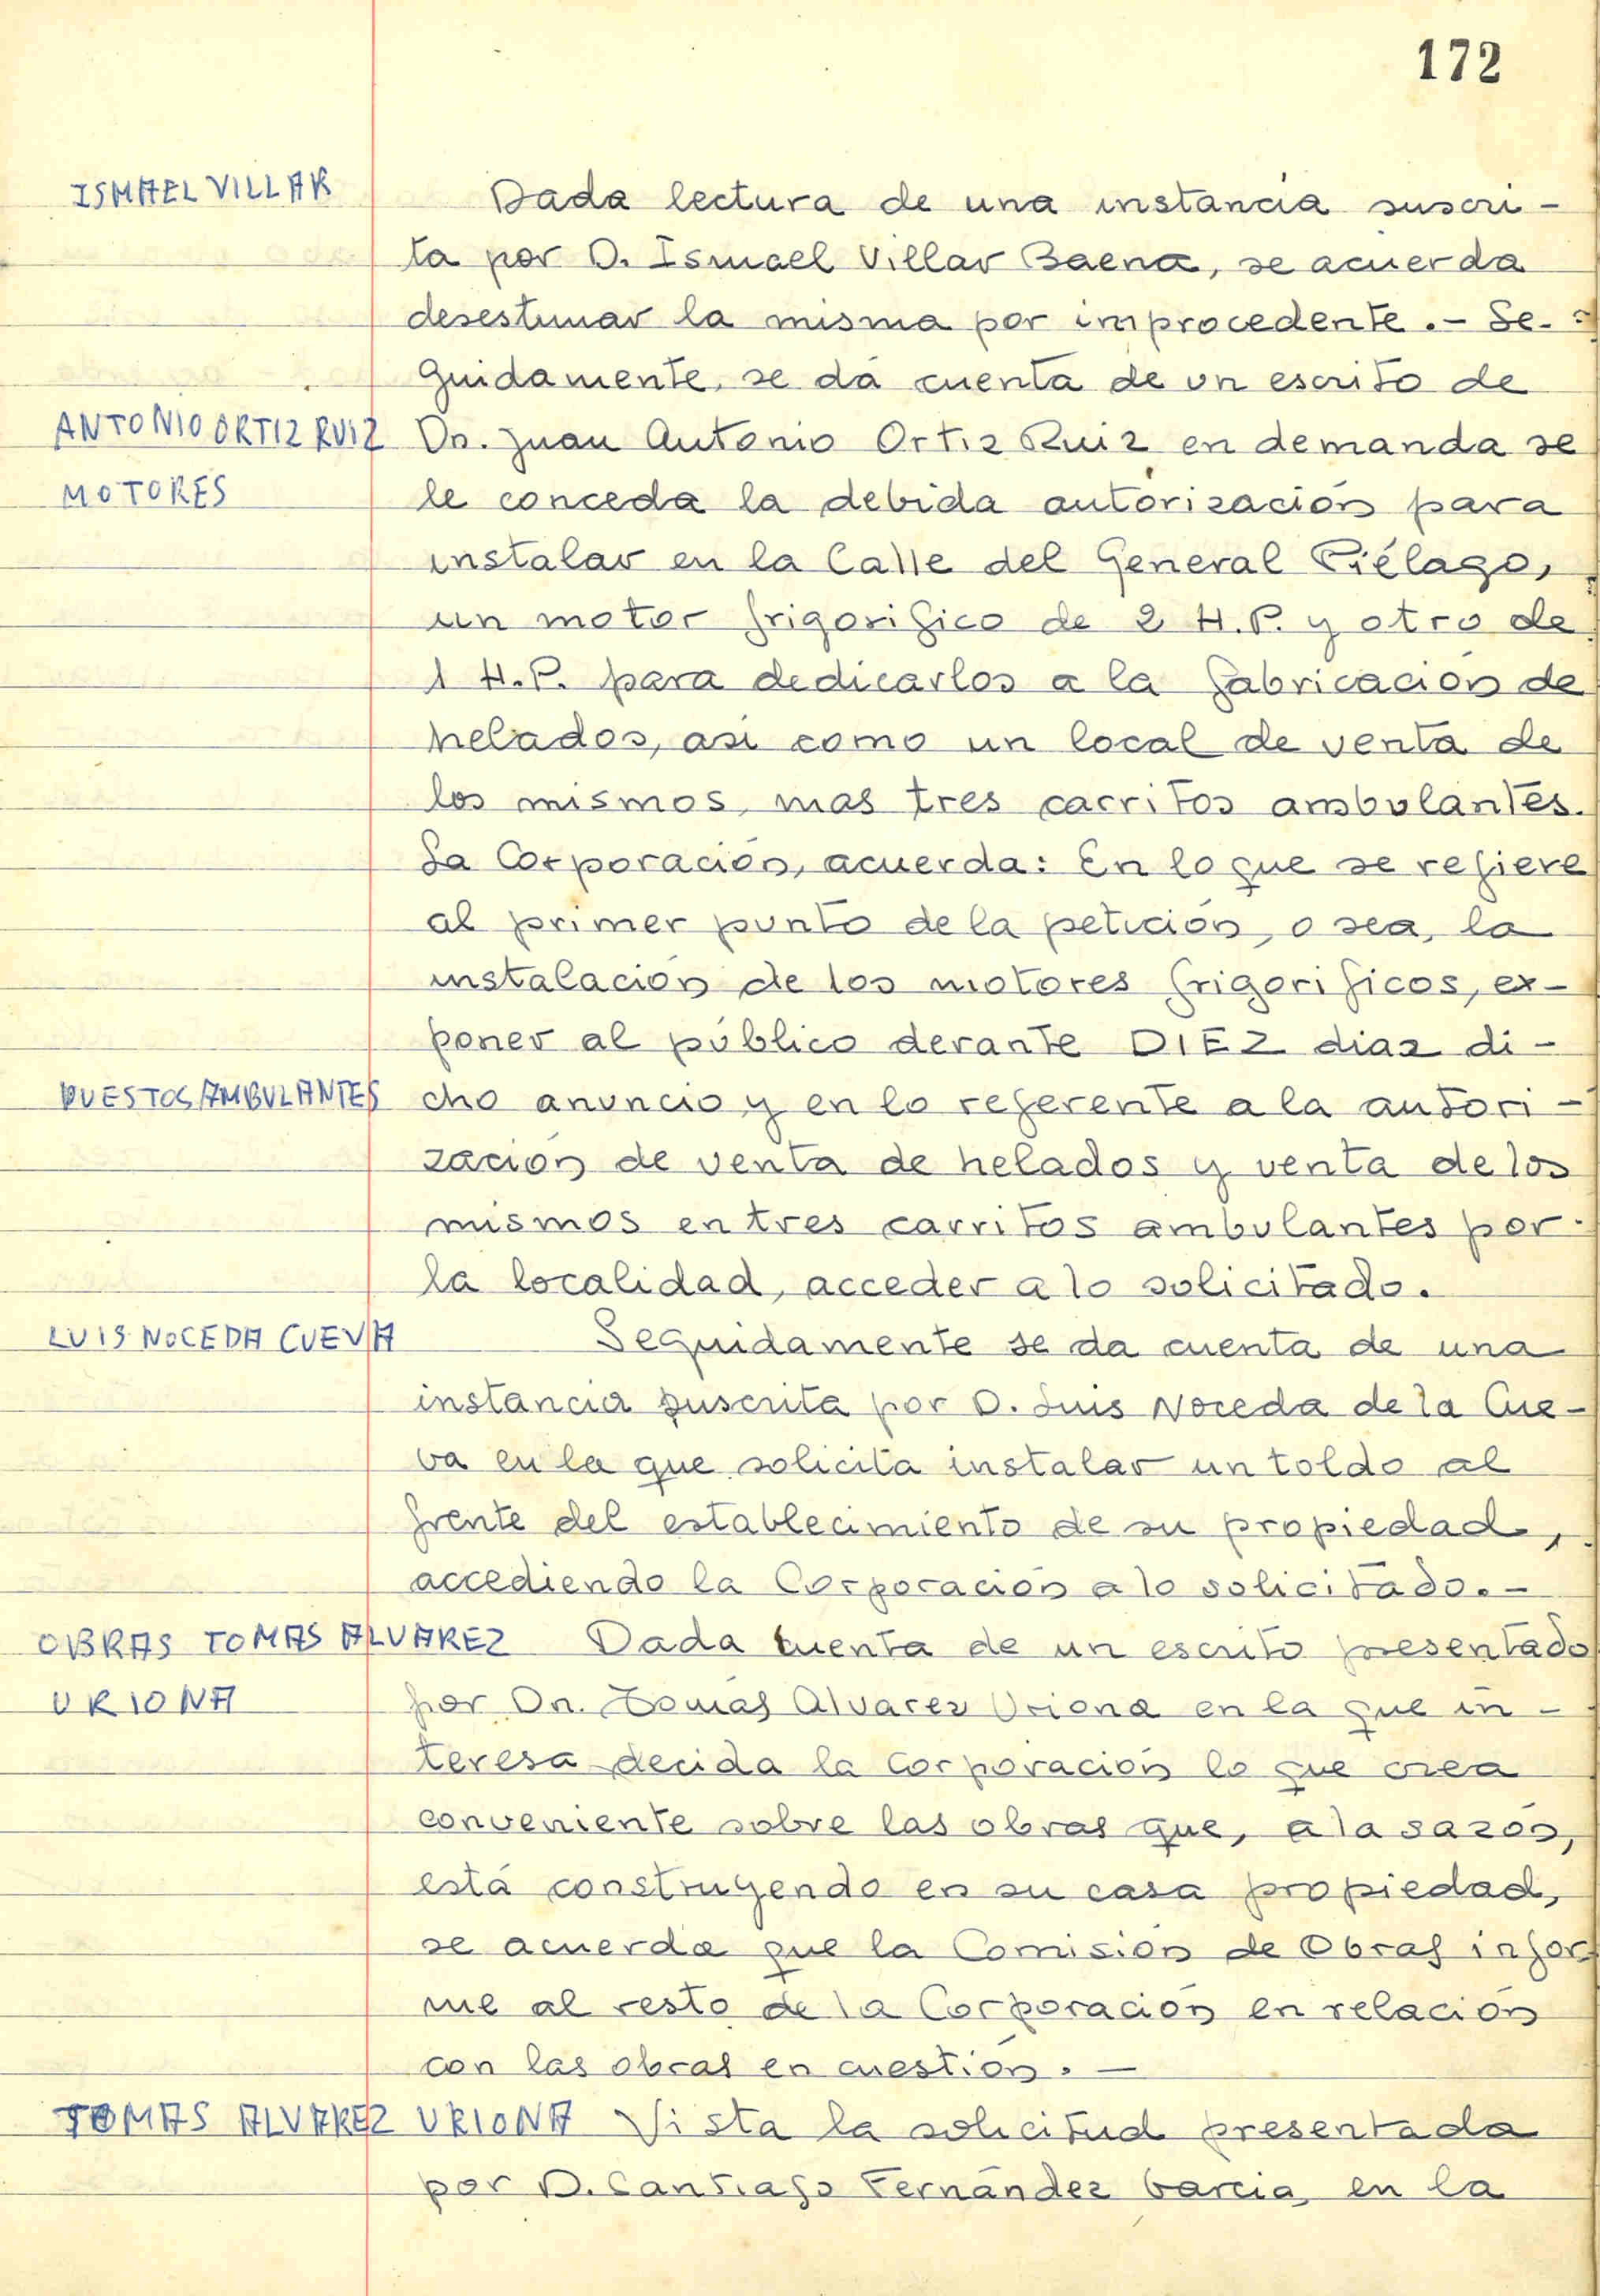 172
ISMAEL VILLAR
Dada lectura de una instancia suscri-
ta por D. Ismael Villar Baena, se acuerda
desestimar la misma por improcedente.- Se-
guidamente, se da cuenta de un escrito de
ANTONIO ORTIZ RUIZ Dn. Juan Antonio Ortiz Ruiz en demanda se
MOTORES le conceda la debida autorización para
instalar en la Calle del General Piélago,
un motor frigorifico de 2 H.P. y otro de
1 H.P. para dedicarlos a la fabricación de
helados, asi como un local de venta de
los mismos, mas tres carritos ambulantes.
La Corporación, acuerda: En lo que se refiere
al primer punto de la petición, o sea, la
instalación de los motores frigorificos, ex-
poner al público derante DIEZ diaz di-
PUESTOS AMBULANTES cho anuncio y en lo referente a la autori-
zación de venta de helados y venta de los
mismos en tres carritos ambulantes por
la localidad, acceder a lo solicitado.
LUIS NOCEDA CUEVA Seguidamente se da cuenta de una
instancia suscrita por D. Luis Noceda de la Cue-
va en la que solicita instalar un toldo al
frente del establecimiento de su propiedad,
accediendo la Corporación a lo solicitado.-
OBRAS TOMAS ALVAREZ Dada cuenta de un escrito presentado
URIONA por Dn. Tomas Alvarez Uriona en la que in-
teresa decida la Corporación lo que crea
conveniente sobre las obras que, a la sazón,
está construyendo en su casa propiedad,
se acuerda que la Comisión de Obras infor
me al resto de la Corporación en relación
con las obras en cuestión.-
TOMAS ALVAREZ URIONA Vista la solicitud presentada
por D. Santiago Fernández Garcia, en la